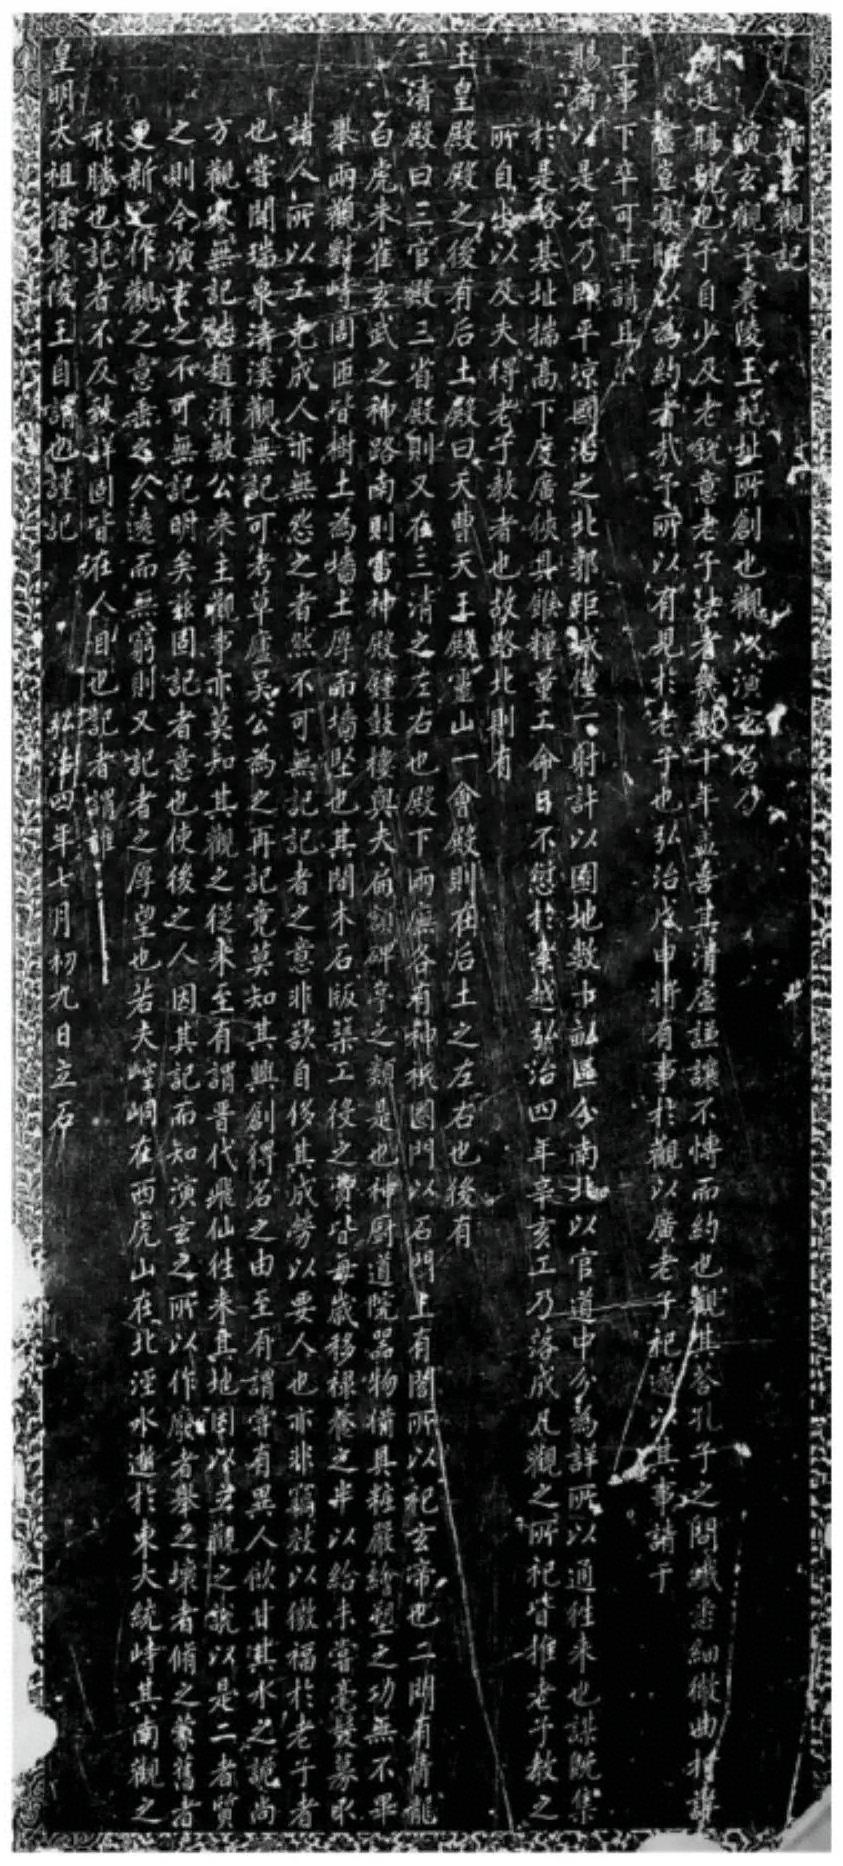 演玄觀記
演玄觀予襄陵王範址所創也觀以演玄名乃
朝廷賜號也予自少及老銳意老子法者幾數十年蓋喜其清虛謙讓不博而約也觀其答孔子之問纖悉細微曲折講
豈寡陋以為約者哉予所以有見於老子也弘治戊申將有事於觀以廣老子祀遂以其事請于
上事下卒可其請且
賜額以是名乃即平涼國治之北郭距城僅一射許以園地數十畝區分南北以官道中分為詳所以通往來也謀既集
於是啓基址揣高下度廣狹具餱糧量工命日不愆於素越弘治四年辛亥工乃落成凡觀之所祀皆推老子教之
所自出以及夫得老子教者也故路北則有
玉皇殿殿之後有后土殿曰天曹天王殿靈山一會殿則在后土之左右也後有
三清殿曰三官殿三省殿則又在三清之左右也殿下兩廡各有神祇園門以石門上有閣所以祀玄帝也二門有青龍
白虎朱雀玄武之神路南則雷神殿鐘鼓樓與夫扁額碑亭之類是也神厨道院器物備具粧嚴繪塑之功無不畢
舉兩觀對峙周匝皆樹土為墻土厚而墻堅也其間木石版築工役之費皆每歲移祿養之半以給未嘗毫髮募取
諸人所以工克成人亦無怨之者然不可無記記者之意非欲自侈其成勞以要人也亦非竊效以徼福於老子者
也嘗聞瑞泉清溪觀無記可考草廬吳公為之再記竟莫知其興創得名之由至有謂嘗有異人飲甘其水之說尚
方觀寥無記趙清敏公來主觀事亦莫知其觀之從來至有謂晉代飛仙往來其地因以立觀之說以是二者質
之則今演玄之不可無記明矣兹固記者意也使後之人因其記而知演玄之所以作廢者舉之壞者脩之蒙舊者
更新之作觀之意垂之久遠而無窮則又記者之厚望也若夫崆峒在西虎山在北涇水逝於東大統峙其南觀之
形勝也記者不及敘詳固皆在人目也記者謂誰
皇明太祖係襄陵王自謂也謹記 弘治四年七月初九日立石